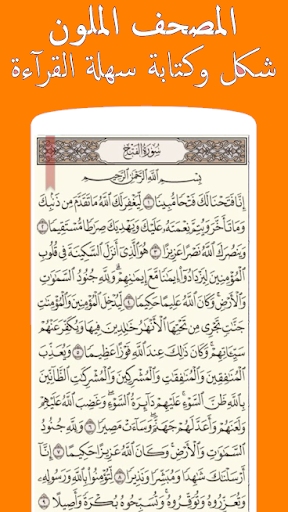 المصحف الملون
شكل وكتابة سهلة القرآءة
سُورَةُ الفَتْحِ
بِسْمِ اللَّهِ الرَّحْمَٰنِ الرَّحِيمِ
إِنَّا فَتَحْنَا لَكَ فَتْحًا مُّبِينًا ١ لِّيَغْفِرَ لَكَ ٱللَّهُ مَا تَقَدَّمَ مِن ذَنۢبِكَ
وَمَا تَأَخَّرَ وَيُتِمَّ نِعْمَتَهُۥ عَلَيْكَ وَيَهْدِيَكَ صِرَٰطًا مُّسْتَقِيمًا ٢
وَيَنصُرَكَ ٱللَّهُ نَصْرًا عَزِيزًا ٣ هُوَ ٱلَّذِىٓ أَنزَلَ ٱلسَّكِينَةَ فِى قُلُوبِ
ٱلْمُؤْمِنِينَ لِيَزْدَادُوٓا۟ إِيمَٰنًا مَّعَ إِيمَٰنِهِمْ ۗ وَلِلَّهِ جُنُودُ ٱلسَّمَٰوَٰتِ
وَٱلْأَرْضِ وَكَانَ ٱللَّهُ عَلِيمًا حَكِيمًا ٤ لِّيُدْخِلَ ٱلْمُؤْمِنِينَ وَٱلْمُؤْمِنَٰتِ
جَنَّٰتٍ تَجْرِى مِن تَحْتِهَا ٱلْأَنْهَٰرُ خَٰلِدِينَ فِيهَا وَيُكَفِّرَ عَنْهُمْ
سَيِّـَٔاتِهِمْ ۚ وَكَانَ ذَٰلِكَ عِندَ ٱللَّهِ فَوْزًا عَظِيمًا ٥ وَيُعَذِّبَ
ٱلْمُنَٰفِقِينَ وَٱلْمُنَٰفِقَٰتِ وَٱلْمُشْرِكِينَ وَٱلْمُشْرِكَٰتِ ٱلظَّآنِّينَ
بِٱللَّهِ ظَنَّ ٱلسَّوْءِ ۚ عَلَيْهِمْ دَآئِرَةُ ٱلسَّوْءِ ۖ وَغَضِبَ ٱللَّهُ عَلَيْهِمْ
وَلَعَنَهُمْ وَأَعَدَّ لَهُمْ جَهَنَّمَ ۖ وَسَآءَتْ مَصِيرًا ٦ وَلِلَّهِ جُنُودُ
ٱلسَّمَٰوَٰتِ وَٱلْأَرْضِ ۚ وَكَانَ ٱللَّهُ عَزِيزًا حَكِيمًا ٧ إِنَّآ
أَرْسَلْنَٰكَ شَٰهِدًا وَمُبَشِّرًا وَنَذِيرًا ٨ لِّتُؤْمِنُوا۟ بِٱللَّهِ وَرَسُولِهِۦ
وَتُعَزِّرُوهُ وَتُوَقِّرُوهُ وَتُسَبِّحُوهُ بُكْرَةً وَأَصِيلًا ٩